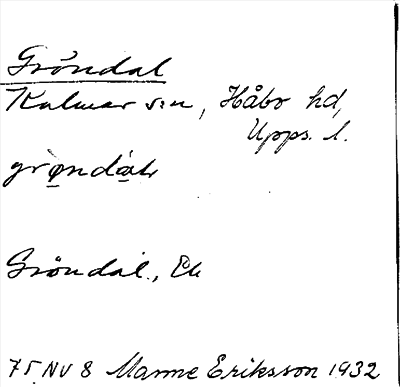 Gröndal
Kalmar sn, Håbo hd,
Upps. l.
grøndɑ̀l
Gröndal, Ek
75 NV 8 Manne Eriksson 1932